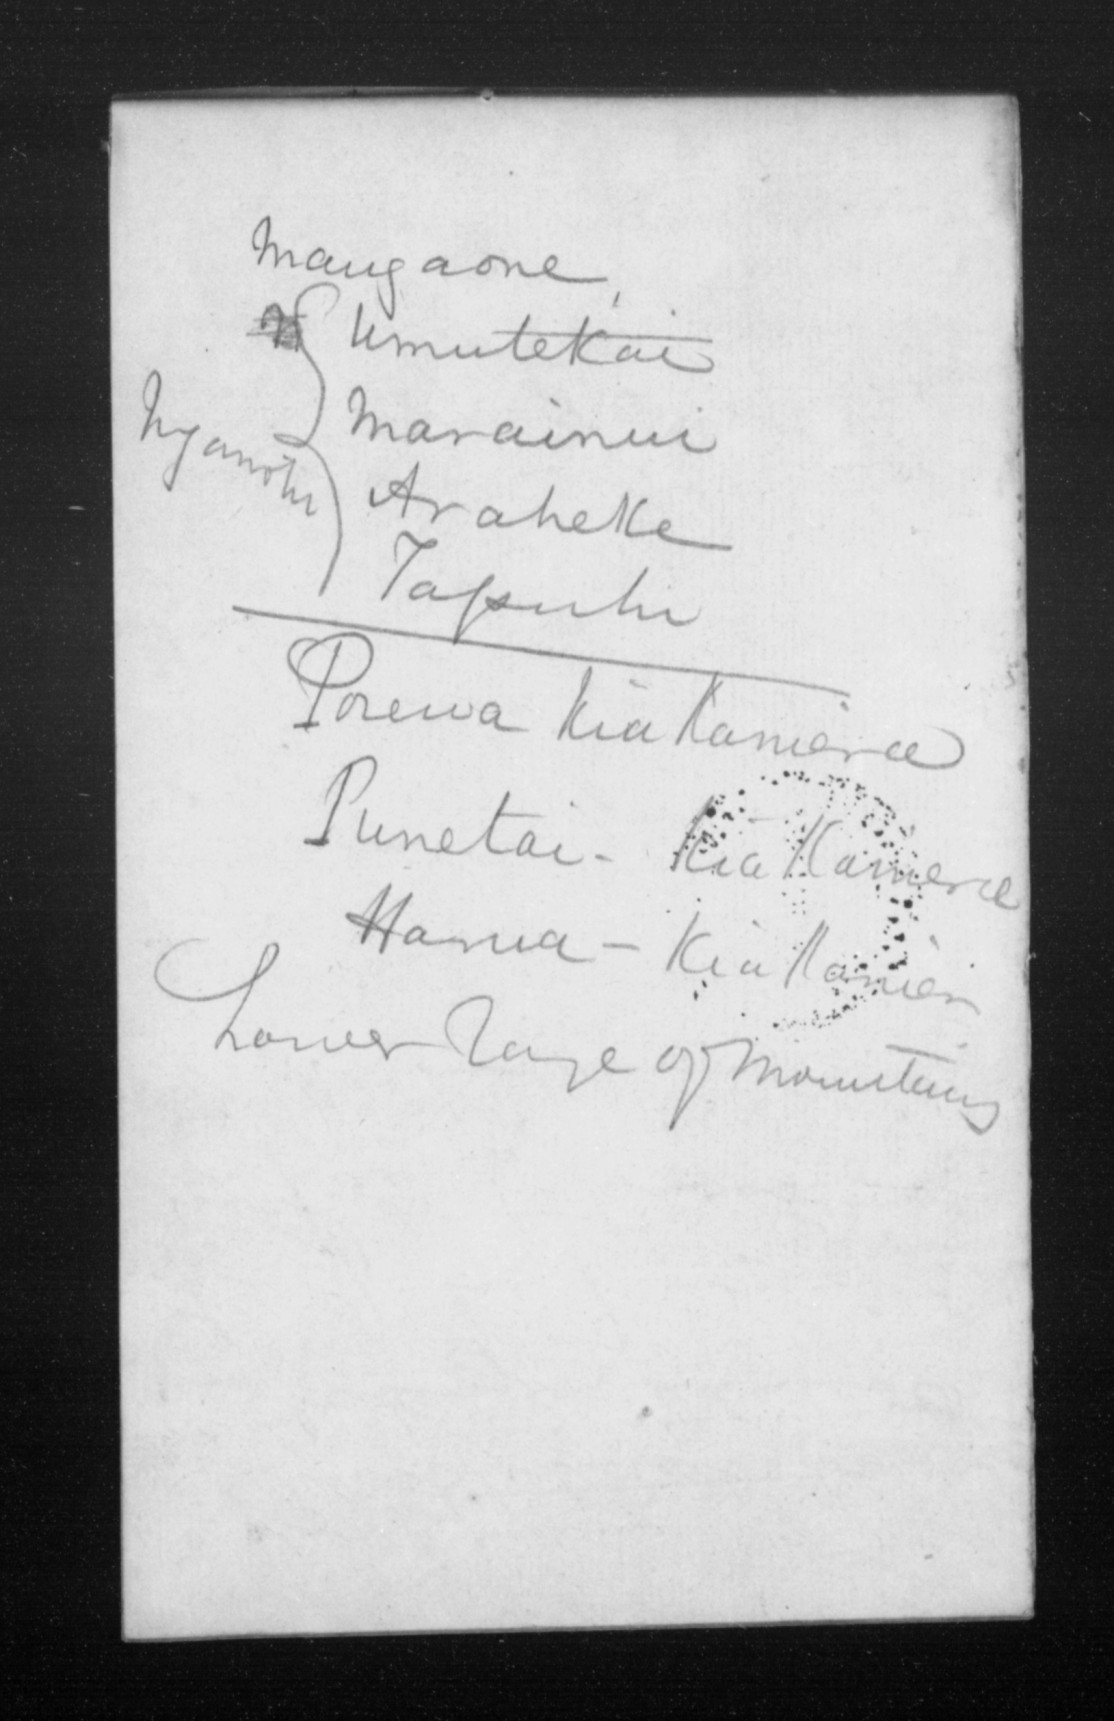 Mangaone,
Umutekai
Marainui
Nganohi
Araheke
Tapuhi
Porewa Kia Kamera
Punetai - Kia Kamera
Harua - Kia Kamera
Lower Range of Mountains